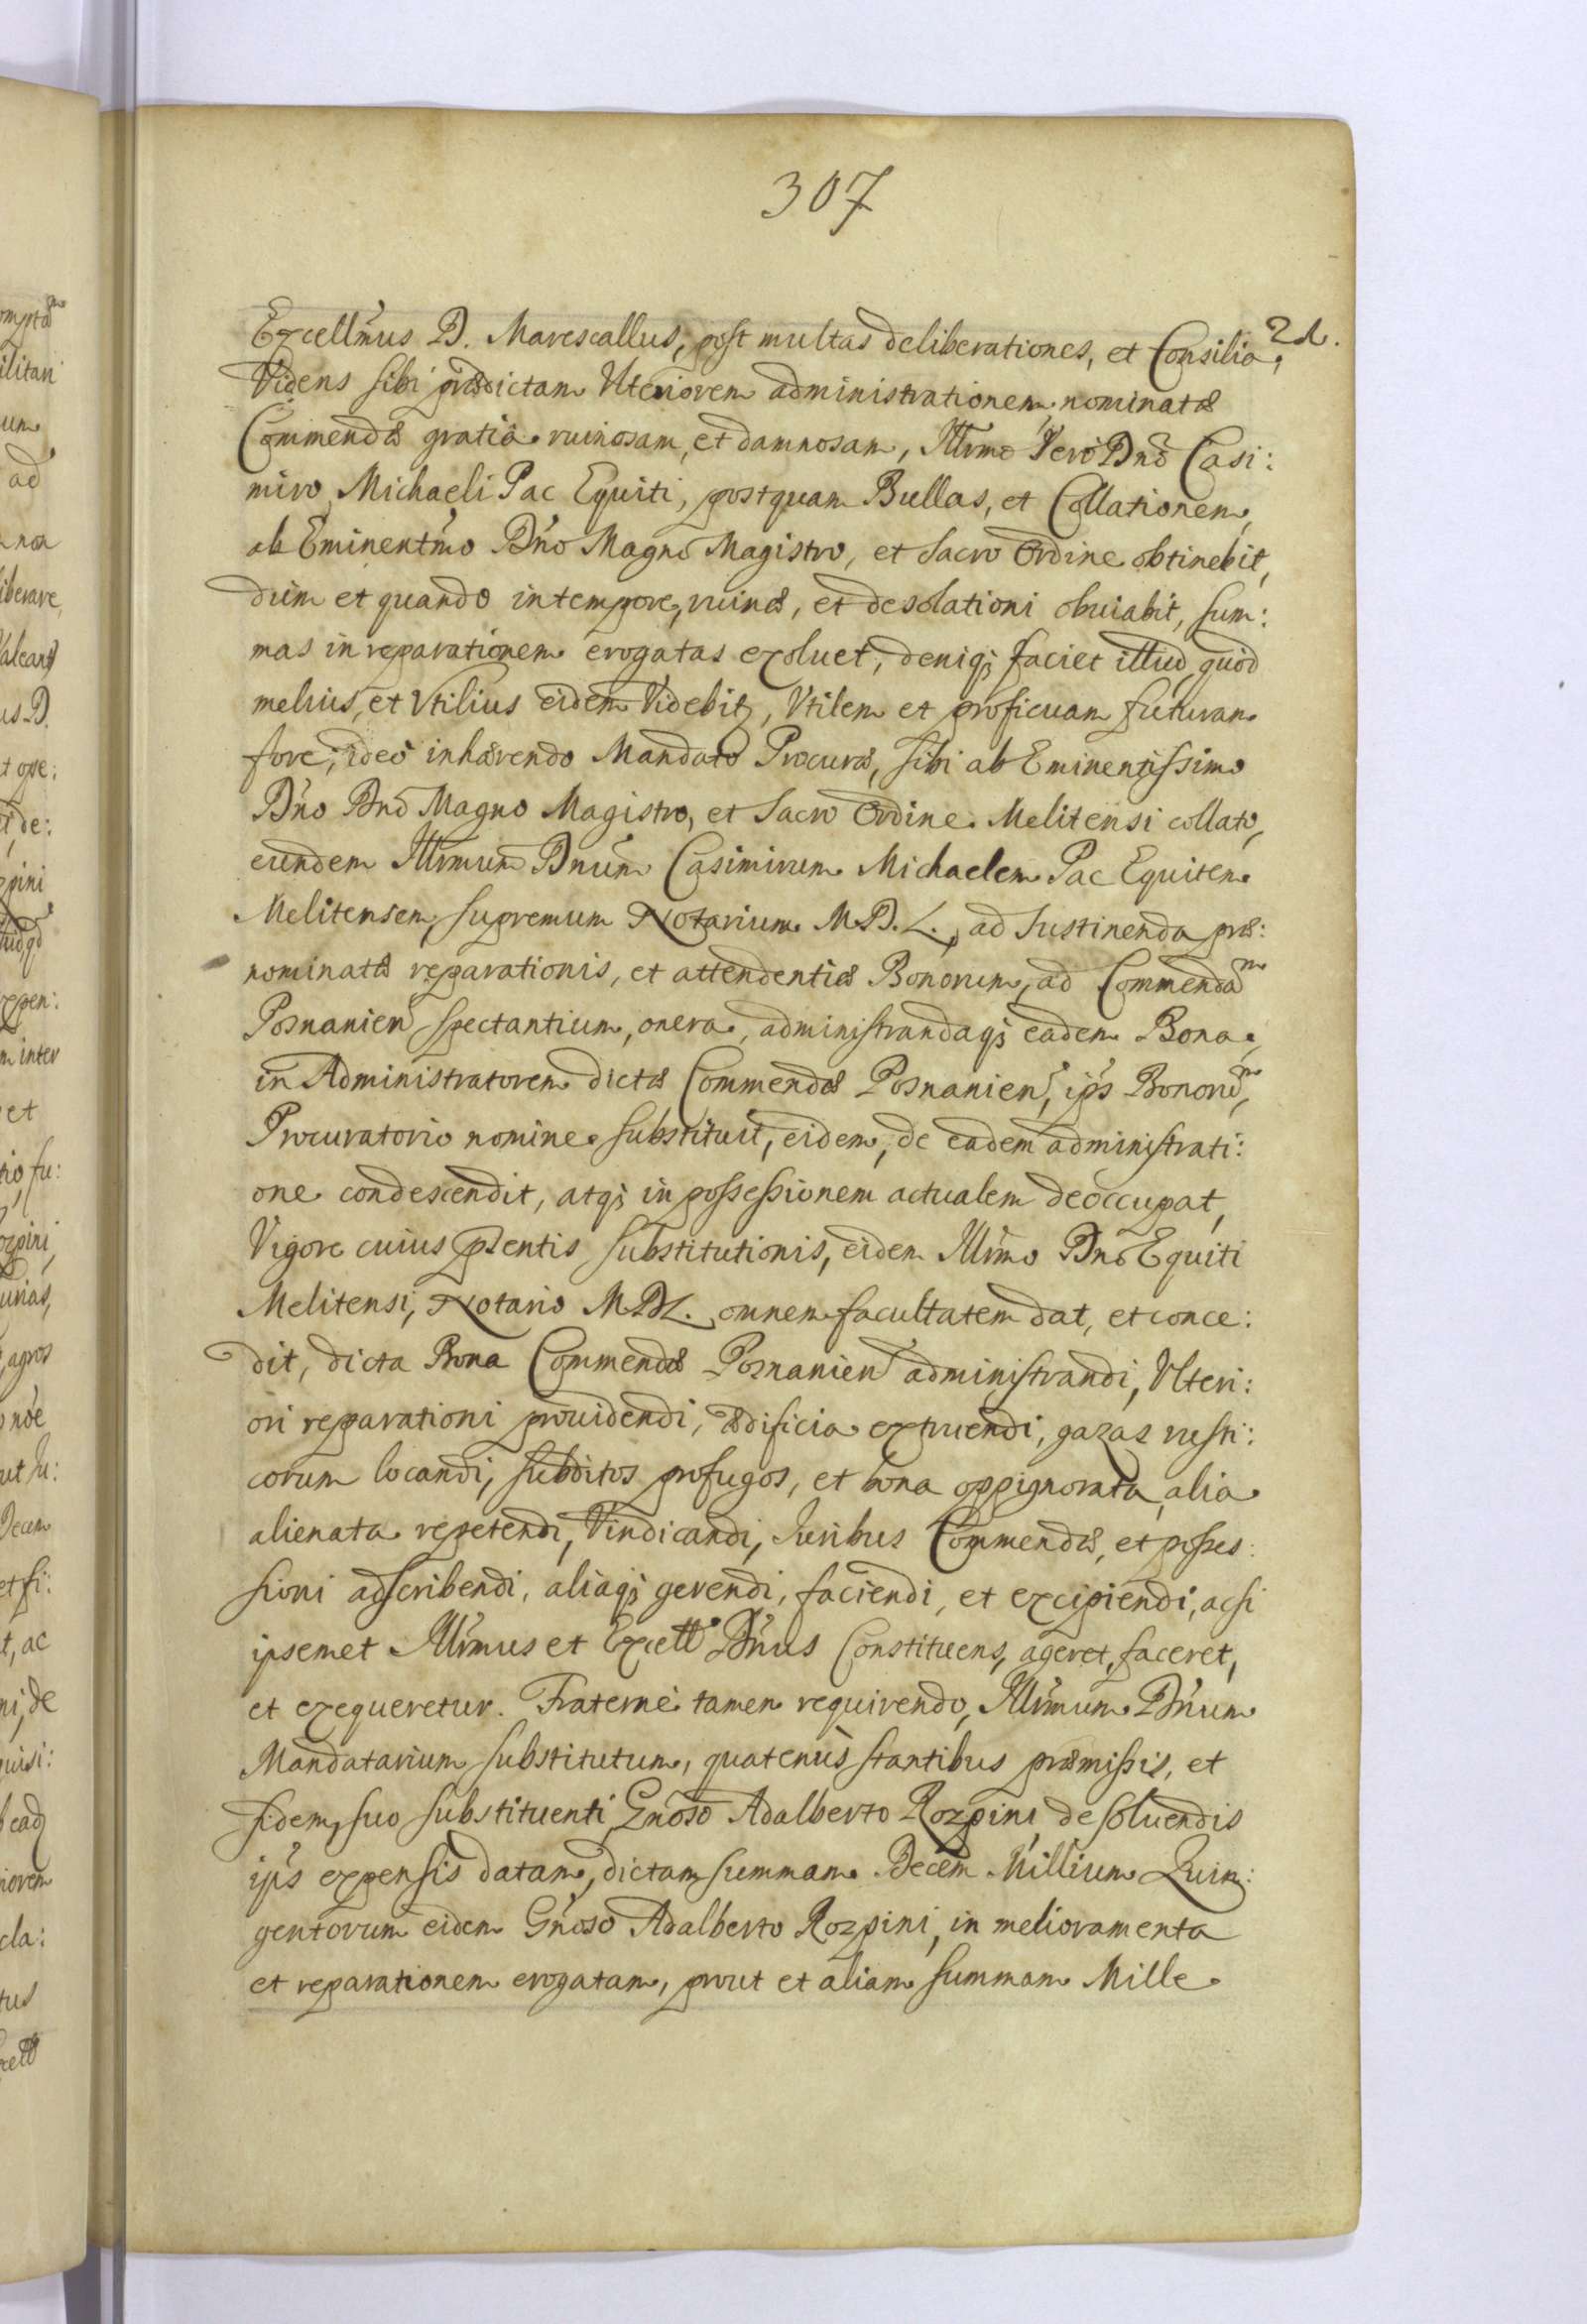 307
Excellm̃us D. Marescallus, post multas deliberationes, et Consilia, 21.
Videns sibi prædictam Vlteriorem administrationem nominatæ
Commendæ gratia ruinosam, et damnosam, Illr̃mo Vero Dnõ Casi:
miro Michaeli Pac Equiti, postquam Bullas, et Collationem,
ab Eminentm̃o Dño Magno Magistro, et Sacro Ordine obtinebit,
dum et quando intempore, ruinæ, et desolationi obuiabit, sum:
mas in reparationem erogatas exoluet, deniqȝ faciet illud, quod
melius, et Vtilius eidem Videbitȝ, Vtilem et proficuam futuram
fore, ideo inhærendo Mandato Procuræ, sibi ab Eminentissimo
Dño Dnõ Magno Magistro, et Sacro Ordine Melitensi collato,
eundem Illr̃mum Dnum̃ Casimirum Michaelem Pac Equitem
Melitensem, supremum Notarium M.D.L., ad Sustinenda præ:
nominatæ reparationis, et attendentiæ Bonorum, ad Commendam
Posnanien̄ spectantium, onera, administrandaqȝ eadem Bona,
in Administratorem dictæ Commendæ Posnanien̄, ip̃s Bonorum̃,
Procuratorio nomine substituit, eidem, de eadem administrati:
one condescendit, atqȝ in possessionem actualem deoccupat,
Vigore cuius p̃sentis substitutionis, eidem Illr̃mo Dnõ Equiti
Melitensi, Notario M.D.L. omnem facultatem dat, et conce:
dit, dicta Bona Commendæ Posnanien̄ administrandi, Vlteri:
ori reparationi prouidendi, ædificia extruendi, gazas rusti:
corum locandi, subditos profugos, et bona oppignorata, alia
alienata repetendi, Vindicandi, Juribus Commendæ, et posses:
sioni adscribendi, aliaqȝ gerendi, faciendi, et excipiendi, acsi
ipsemet Illr̃mus et Excell̃ Dñus Constituens, ageret, faceret,
et exequeretur. Fraternè tamen requirendo, Illr̃mum Dñum
Mandatarium substitutum, quatenùs stantibus præmissis, et
fidem, suo substituenti, Gnõso Adalberto Rozpini de soluendis
ip̃s expensis datam, dictam summam Decem Millium Quin:
gentorum eidem Gñoso Adalberto Rozpini, in melioramenta
et reparationem erogatam, prout et aliam summam Mille